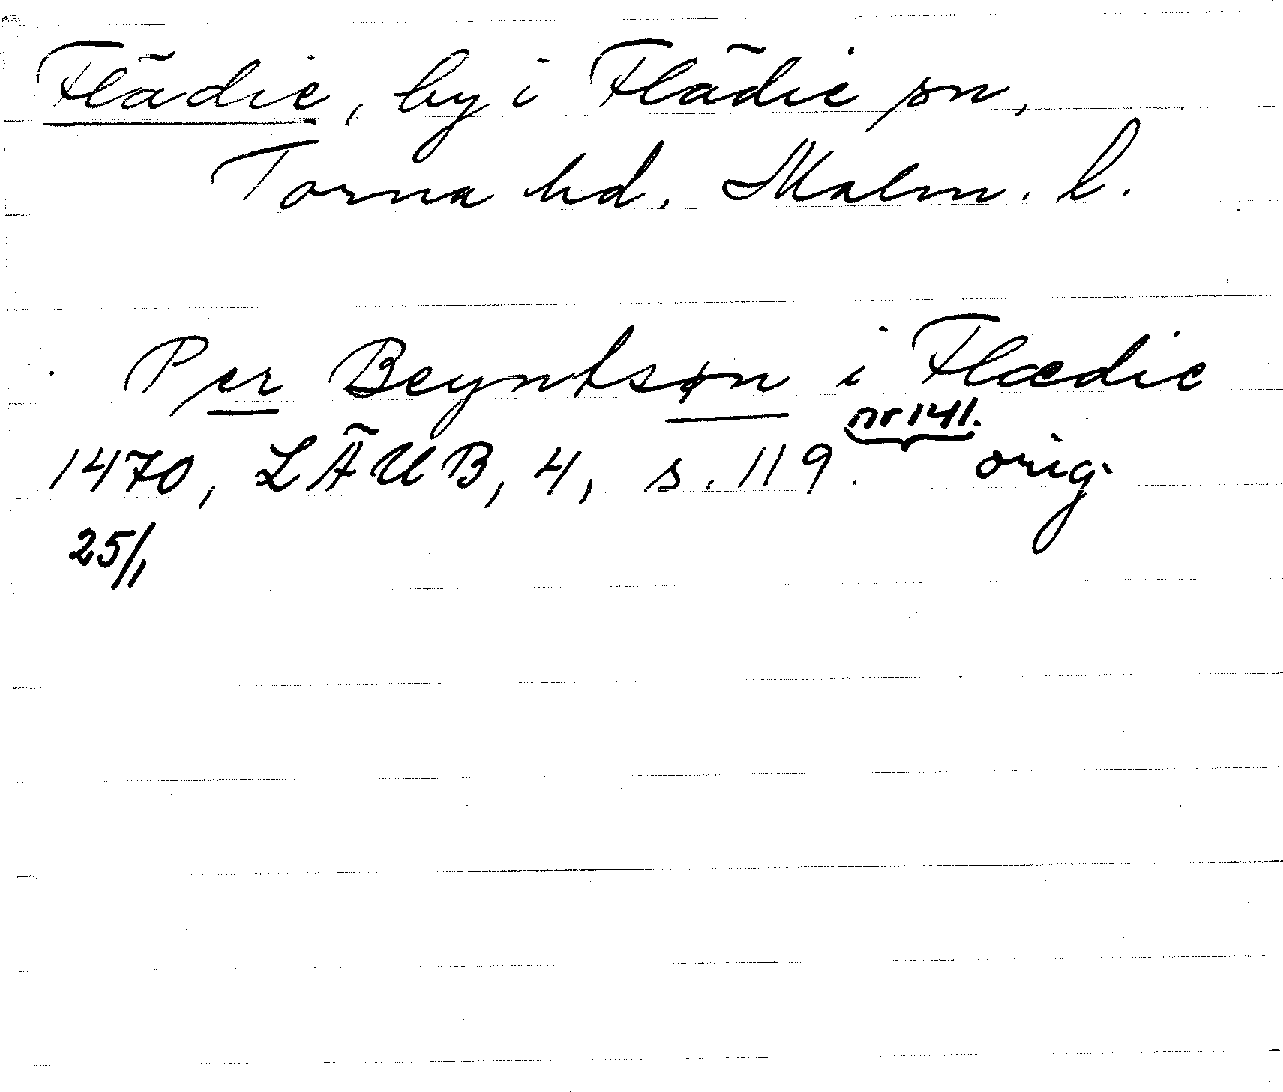 Flädie, by i Flädie sn,
Torna hd, Malm. l.
Per Beyntsøn i Flædie
nr 141.
1470, LÄUB, 4, s. 119. orig.
25/1